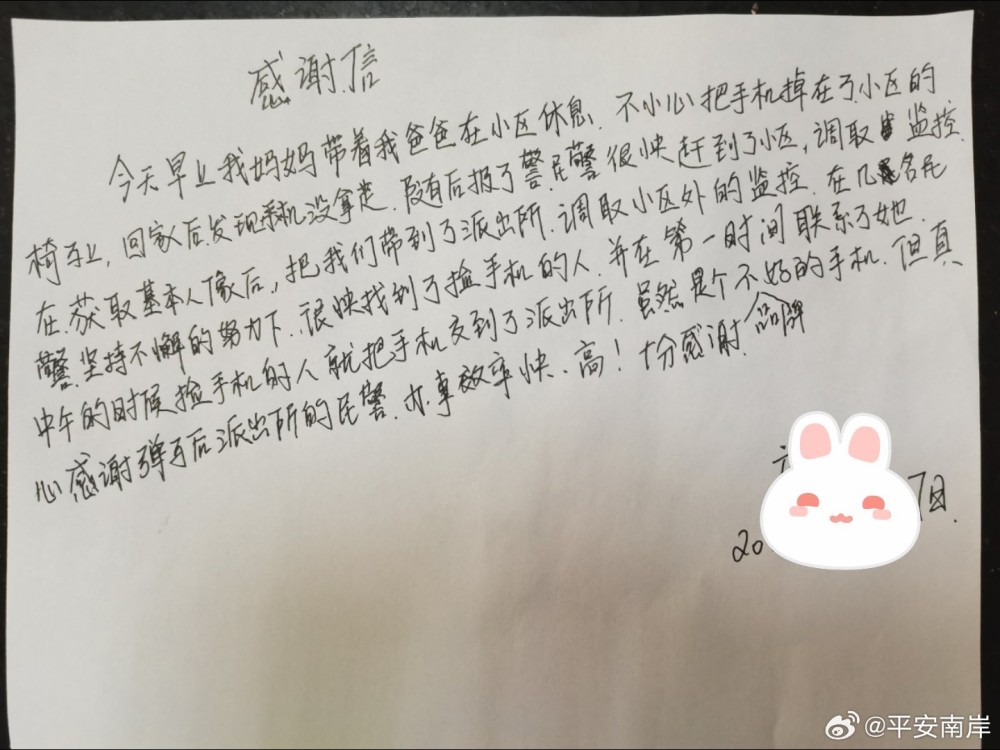 感谢信
今天早上我妈妈带着我爸爸在小区休息.不小心把手机掉在了小区的
椅子上,回家后发现手机没拿走.没有后报了警.民警很快赶到了小区,调取监控.
在获取基本人像后,把我们带到了派出所.调取小区外的监控.在几名民
警坚持不懈的努力下.很快找到了捡手机的人.并在第一时间联系了她.
中午的时候捡手机的人就把手机交到了派出所.虽然是个不好的手机.但真
品牌
心感谢弹子石派出所的民警.办事效率快、高!十分感谢.
20
7日.
@平安南岸